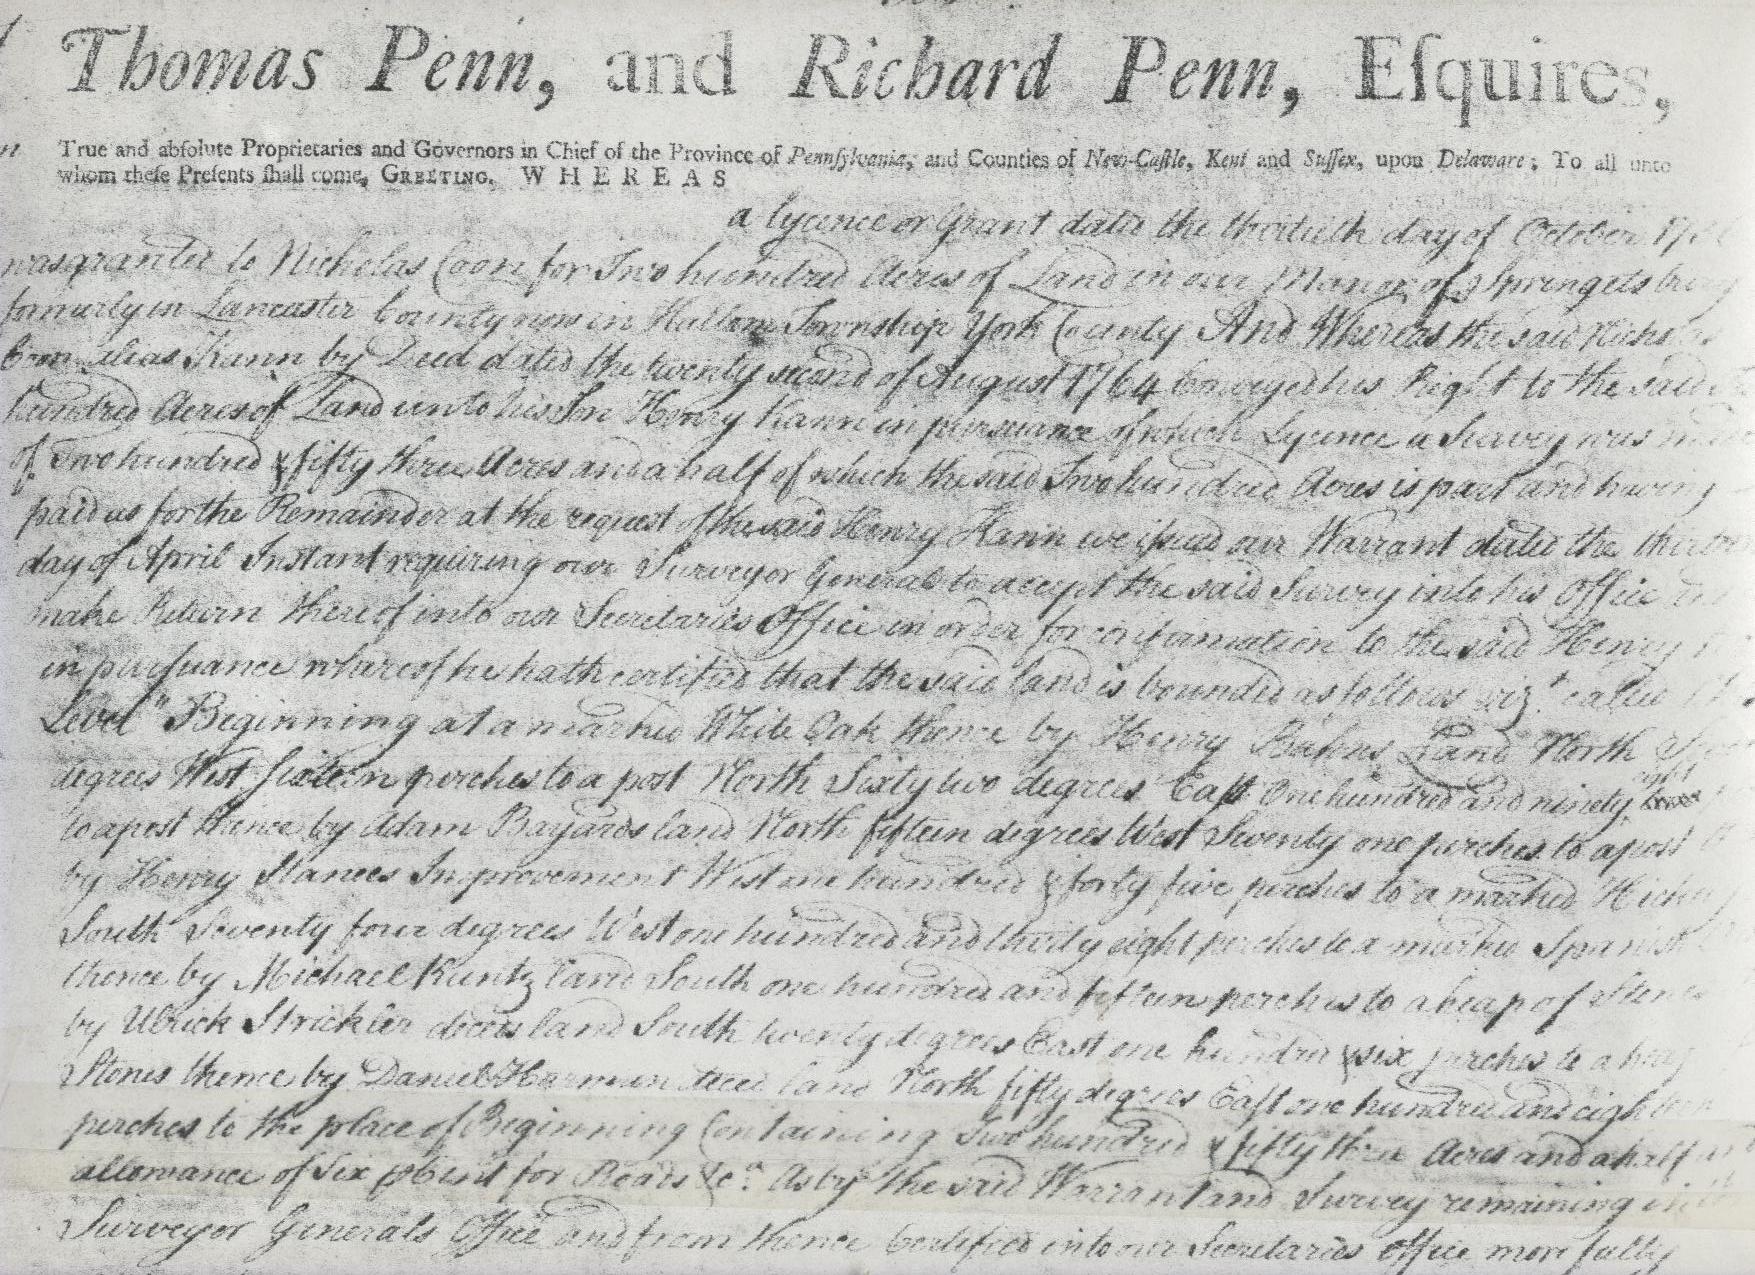 Thomas Penn, and Richard Penn, Eſquires,
True and abſolute Proprietaries and Governors in Chief of the Province of Pennſylvania, and Counties of New-Caſtle, Kent and Suſſex, upon Delaware; To all unto
whom theſe Preſents ſhall come, GREETING. WHEREAS
a lycence or Grant dated the thirtieth day of October
was granted to Nicholas Coon for Two hundred Acres of Land in our Manor of Springetsbury
formerly in Lancaster County now in Hallam Township York County And Whereas the said Nicholas
Coon alias Kann by Deed dated the twenty second of August 1764 Conveyed his Right to the said
hundred Acres of Land unto his Son Henry Kann in pursuance of which Lycence a Survey was made
of Two hundred & fifty three Acres and a half of which the said Two hundred Acres is part and having
paid us for the Remainder at the request of the said Henry Kann we iſsued our Warrant dated the
day of April Instant requiring our Surveyor General to accept the said Survey into his Office and
make Return thereof into our Secretaries Office in order for confirmation to the said Henry
in purſuance whereof he hath certified that the said land is bounded as follows vizt. called
Level" Beginning at a marked White Oak thence by Henry Bahns Land North
degrees West Sixteen perches to a post North Sixty two degrees Eaſt One hundred and ninety eight
to a post thence by Adam Bayards land North fifteen degrees West Seventy one perches to a post
by Henry Stances Improvement West one hundred & forty five perches to a marked
South Seventy four degrees West one hundred and thirty eight perches to a marked Spanish
thence by Michael Kuntz land South one hundred and fifteen perches to a heap of Stones
by Ulrick Strickler deces land South twenty degrees East one hundred & six perches to a heap
Stones thence by Daniel Harman deced land North fifty degrees Eaſt one hundred and eighteen
perches to the place of Beginning Containing Two hundred & fifty three Acres and a half and
allowance of Six ⅌ Cent for Roads &ca. As by the said Warrant and Survey remaining in
Surveyor Generals Office and from thence Certified into our Secretaries Office more fully